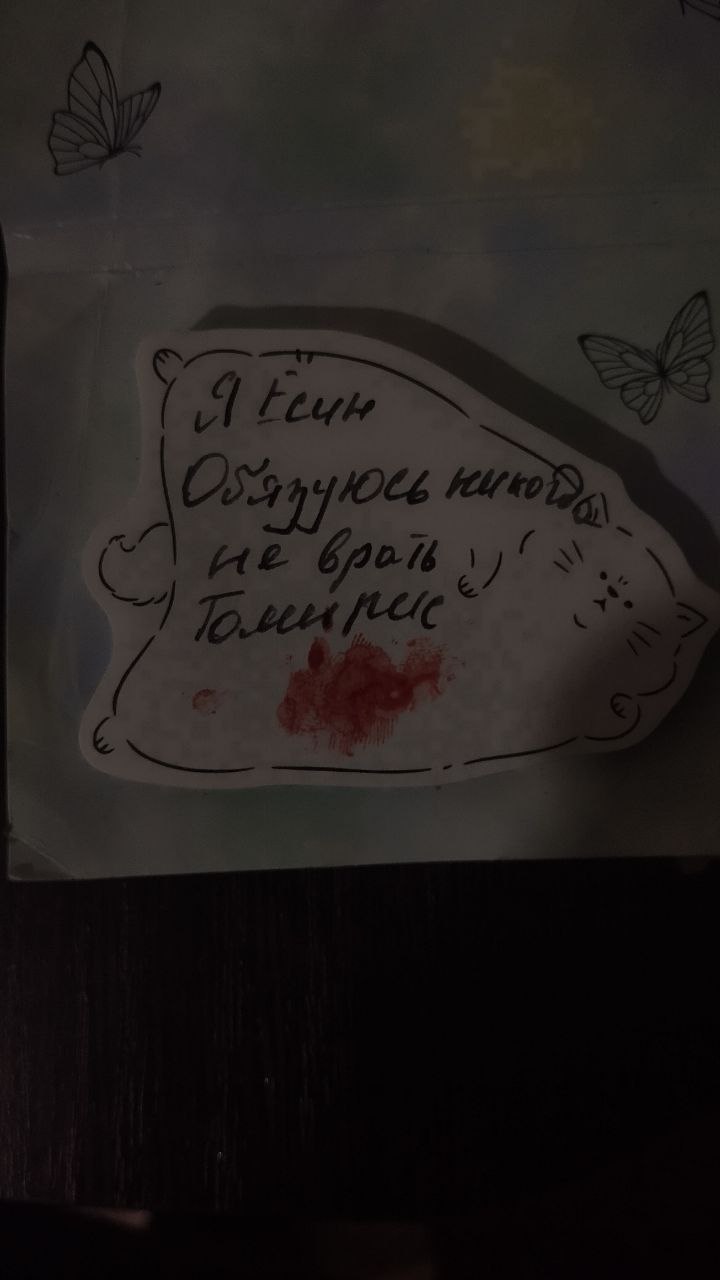 Я Ёсин
Обязуюсь никогда
не врать
Томирис